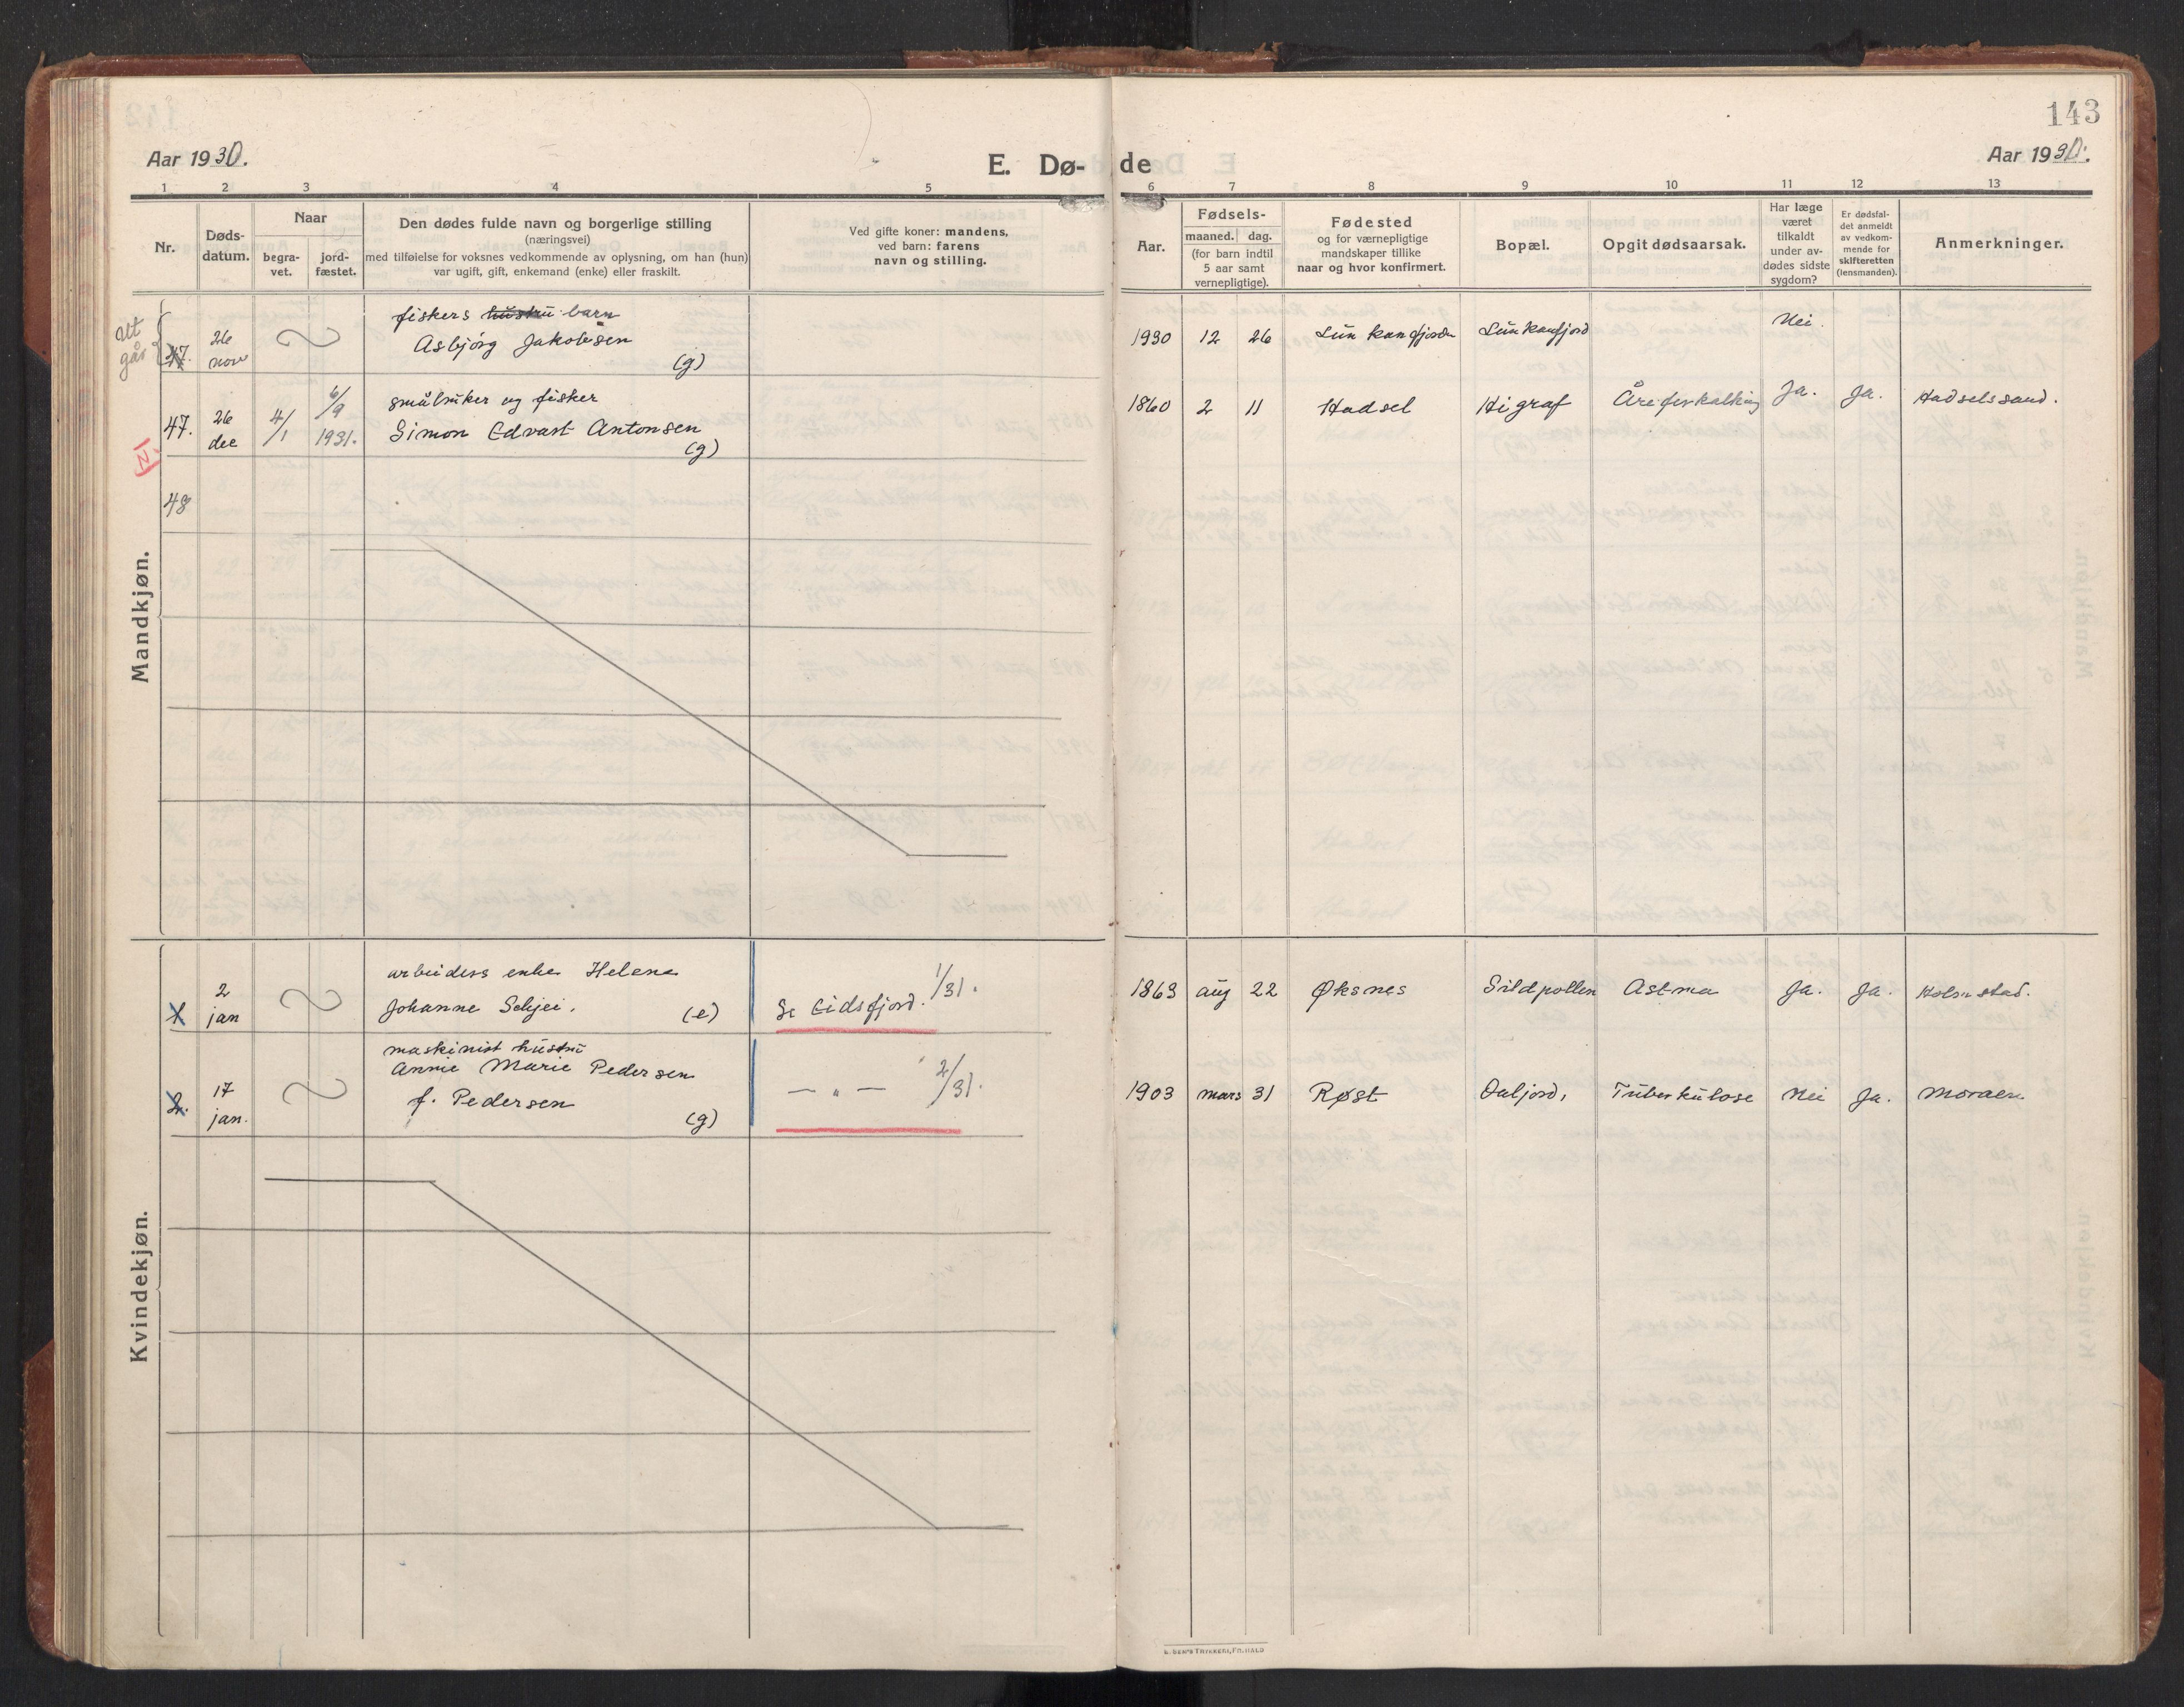 143
Aar 1930.
E. Dø-
de
Aar 1930.
1 2 3 4 5 6 7 8 9 10 11 12 13
Nr.
Døds-
datum.
Naar
begra-
vet.
jord-
fæstet.
Den dødes fulde navn og borgerlige stilling
(næringsvei)
med tilføielse for voksnes vedkommende av oplysning, om han (hun)
var ugift, gift, enkemand (enke) eller fraskilt.
Ved gifte koner: mandens,
ved barn: farens
navn og stilling.
Aar.
Fødsels-
maaned. dag.
(for barn indtil
5 aar samt
vernepligtige).
Fødested
og for værnepligtige
mandskaper tillike
naar og hvor konfirmert.
Bopæl.
Opgit dødsaarsak.
Har læge
været
tilkaldt
under av-
dødes sidste
sygdom?
Er dødsfal-
det anmeldt
av vedkom-
mende for
skifteretten
(lensmanden).
Anmerkninger.
Mandkjøn.
Ut
går
47.
26
nov
fiskers hustru barn
Asbjørg Jakobsen
(g)
1930 12 26 Lunkanfjorden Lunkanfjord Nei.
47.
26
dec
4/1
6/9
1931.
småbruker og fisker
Simon Edvart Antonsen
(g)
1860 2 11 Hadsel Higraf Åreforkalkning Ja. Ja. Hadselsand.
48
Kvindekjøn.
1
2
jan
arbeiders enke Helene
Johanne Schjei.
(e)
Se Eidsfjord. 1/31.
1863 aug 22 Øksnes Sildpollen Astma Ja. Ja. Holmstad.
2.
17
jan.
maskinist hustru
Annie Marie Pedersen
f. Pedersen
(g)
— „ — 2/31.
1903 mars 31 Røst Daljord, Tuberkulose Nei Ja. Moraen.